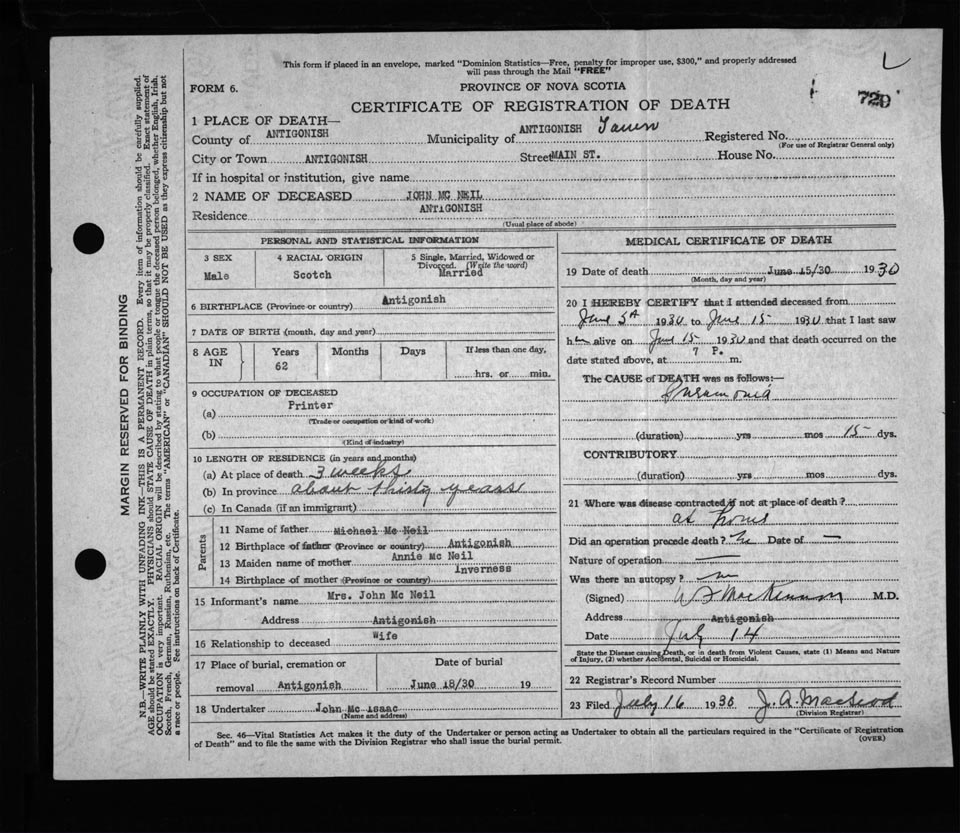 This form if placed in an envelope, marked "Dominion Statistics—Free, penalty for improper use, $300," and properly addressed
will pass through the Mail "FREE"
FORM 6.
PROVINCE OF NOVA SCOTIA
720
CERTIFICATE OF REGISTRATION OF DEATH
1 PLACE OF DEATH—
County of ANTIGONISH Municipality of ANTIGONISH Town Registered No.
(For use of Registrar General only)
City or Town ANTIGONISH Street MAIN ST. House No.
If in hospital or institution, give name
2 NAME OF DECEASED JOHN MC NEIL
Residence ANTIGONISH
(Usual place of abode)
PERSONAL AND STATISTICAL INFORMATION
3 SEX 4 RACIAL ORIGIN 5 Single, Married, Widowed or
Divorced. (Write the word)
Male Scotch Married
6 BIRTHPLACE (Province or country) Antigonish
7 DATE OF BIRTH (month, day and year)
8 AGE IN Years Months Days If less than one day,
62 hrs. or min.
9 OCCUPATION OF DECEASED
(a) Printer
(Trade or occupation or kind of work)
(b)
(Kind of industry)
10 LENGTH OF RESIDENCE (in years and months)
(a) At place of death 3 weeks
(b) In province about thirty years
(c) In Canada (if an immigrant)
Parents
11 Name of father Michael Mc Neil
12 Birthplace of father (Province or country) Antigonish
13 Maiden name of mother Annie Mc Neil
14 Birthplace of mother (Province or country) Inverness
15 Informant's name Mrs. John Mc Neil
Address Antigonish
16 Relationship to deceased Wife
17 Place of burial, cremation or Date of burial
removal Antigonish June 18/30 19
18 Undertaker John Mc Isaac
(Name and address)
MEDICAL CERTIFICATE OF DEATH
19 Date of death June 15/30 1930
(Month, day and year)
20 I HEREBY CERTIFY that I attended deceased from
June 1930 to June 15 1930 that I last saw
him alive on June 15 1930 and that death occurred on the
date stated above, at 7 P. m.
The CAUSE of DEATH was as follows:—
Pneumonia
(duration) yrs mos 15 dys.
CONTRIBUTORY
(duration) yrs mos dys.
21 Where was disease contracted if not at place of death?
at home
Did an operation precede death? No Date of —
Nature of operation —
Was there an autopsy? no
(Signed) W F MacKinnon M.D.
Address Antigonish
Date July 14
State the Disease causing Death, or in death from Violent Causes, state (1) Means and Nature
of Injury, (2) whether Accidental, Suicidal or Homicidal.
22 Registrar's Record Number
23 Filed July 16 1930 J. A. Macleod
(Division Registrar)
Sec. 46—Vital Statistics Act makes it the duty of the Undertaker or person acting as Undertaker to obtain all the particulars required in the "Certificate of Registration
of Death" and to file the same with the Division Registrar who shall issue the burial permit.
(OVER)
MARGIN RESERVED FOR BINDING
N.B.—WRITE PLAINLY WITH UNFADING INK—THIS IS A PERMANENT RECORD. Every item of information should be carefully supplied.
AGE should be stated EXACTLY. PHYSICIANS should STATE CAUSE OF DEATH in plain terms, so that it may be properly classified. Exact statement of
OCCUPATION is very important. RACIAL ORIGIN will be described by stating to what people or tongue the deceased person belonged, whether English, Irish,
Scotch, French, German, Russian, Ruthenian, etc. The terms "AMERICAN" or "CANADIAN" SHOULD NOT BE USED as they express citizenship but not
a race or people. See instructions on back of Certificate.